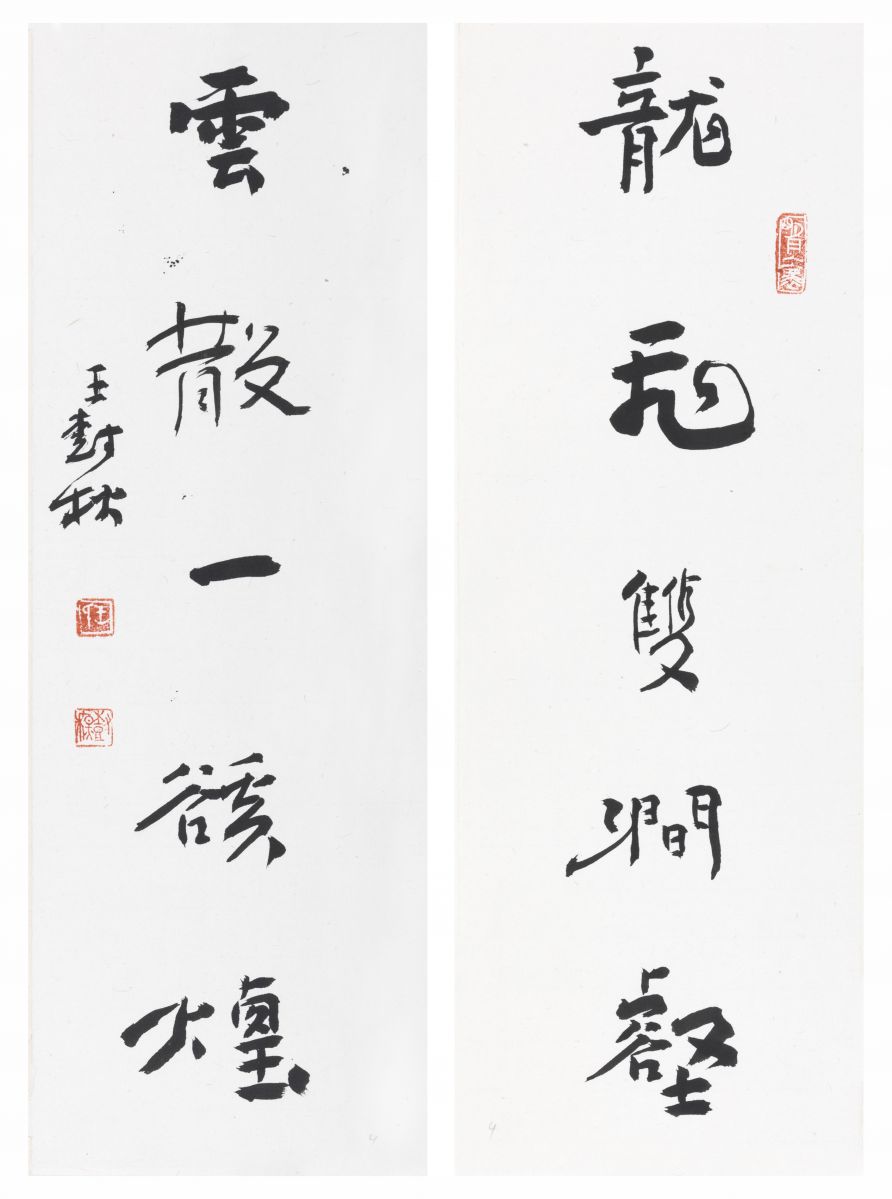 龍飛雙澗壑
雲散一谿煙
王